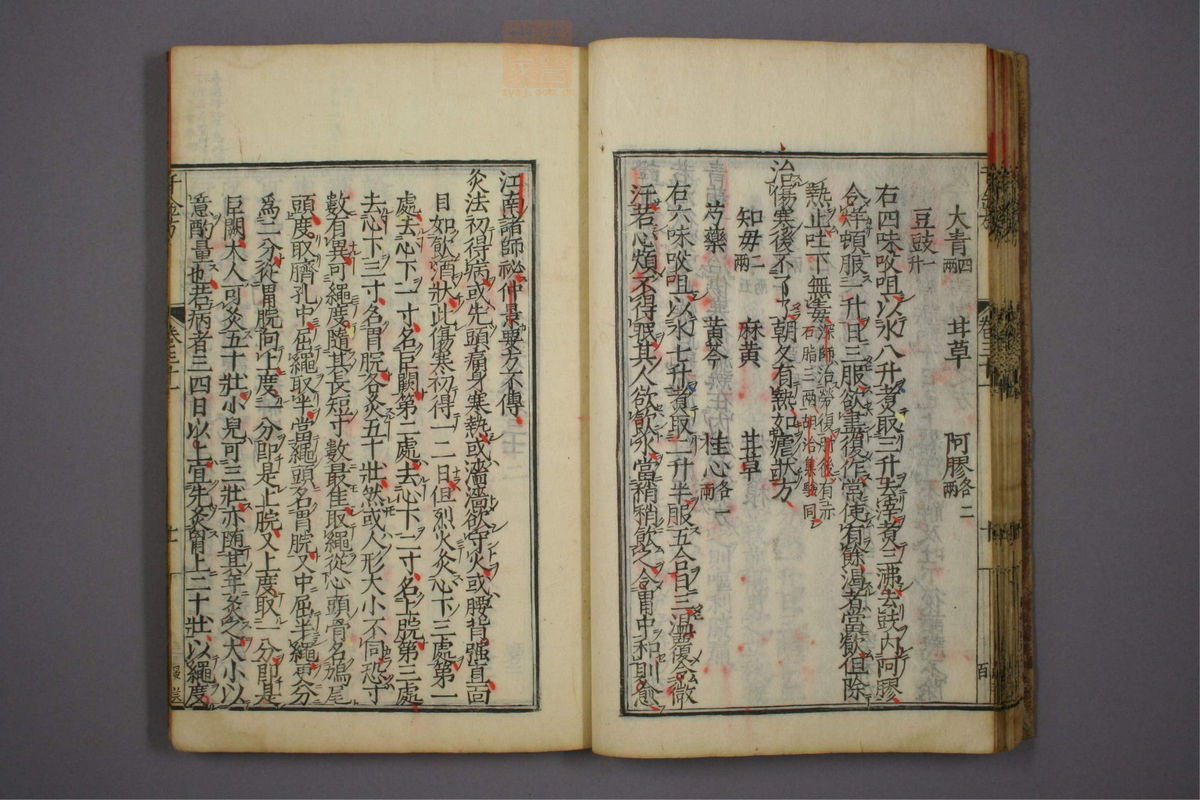 大青四兩　甘草　阿膠各二兩
豆豉一升
右四味㕮咀以水八升煮取三升去滓煮三沸去豉內阿膠
令烊頓服一升日三服欲盡復作常使有餘渴者當飲但除
熱止吐下無毒深師治勞復
石脂三兩一胡洽集驗同
治傷寒後不了了朝夕有熱如瘧狀方
知母二兩　麻黃　甘草
芍藥　黃芩　桂心各一兩
右六味㕮咀以水七升煮取二升半服五合日三溫覆令微
汗若心煩不得眠其人欲飲水當稍稍飲之令胃中和則愈
江南諸師祕仲景要方不傳
灸法初得病或先頭痛身寒熱或濇濇欲守火或腰背強直面
目如飲酒狀此傷寒初得一二日但烈火灸心下三處第一
處去心下一寸名巨闕第二處去心下二寸名上脘第三處
去心下三寸名胃脘各灸五十壯然或人形大小不同恐寸
數有異可繩度隨其長短寸數最佳取繩從心頭骨名鳩尾
頭度取臍孔中屈繩取半當繩頭名胃脘又中屈半繩更分
為二分從胃脘向上度一分即是上脘又上度取一分即是
巨闕大人可灸五十壯小兒可三壯亦隨其年灸之大小以
意酌量也若病者三四日以上宜先灸胷上二十壯以繩度